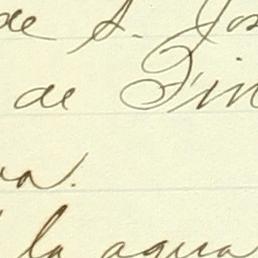 de S. Jos
de Fin
va.
la agua